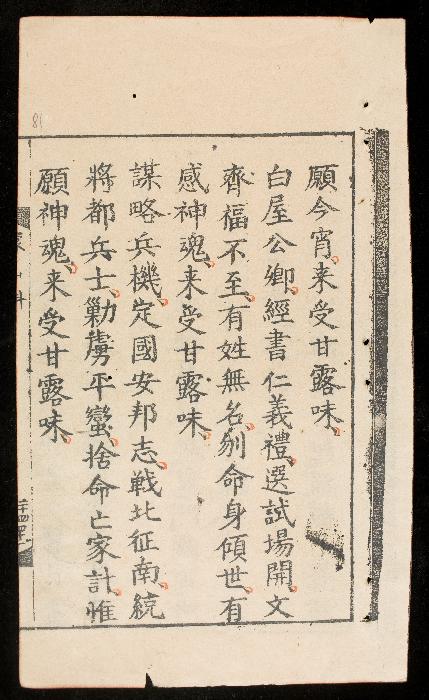 願今宵来受甘露味
白屋公卿經書仁義禮選試場開文
齊福不至有姓無名剙命身傾世有
感神魂来受甘露味
謀略兵機定國安邦志戦北征南統
將都兵士勦虜平蠻捨命亡家計惟
願神魂来受甘露味
81